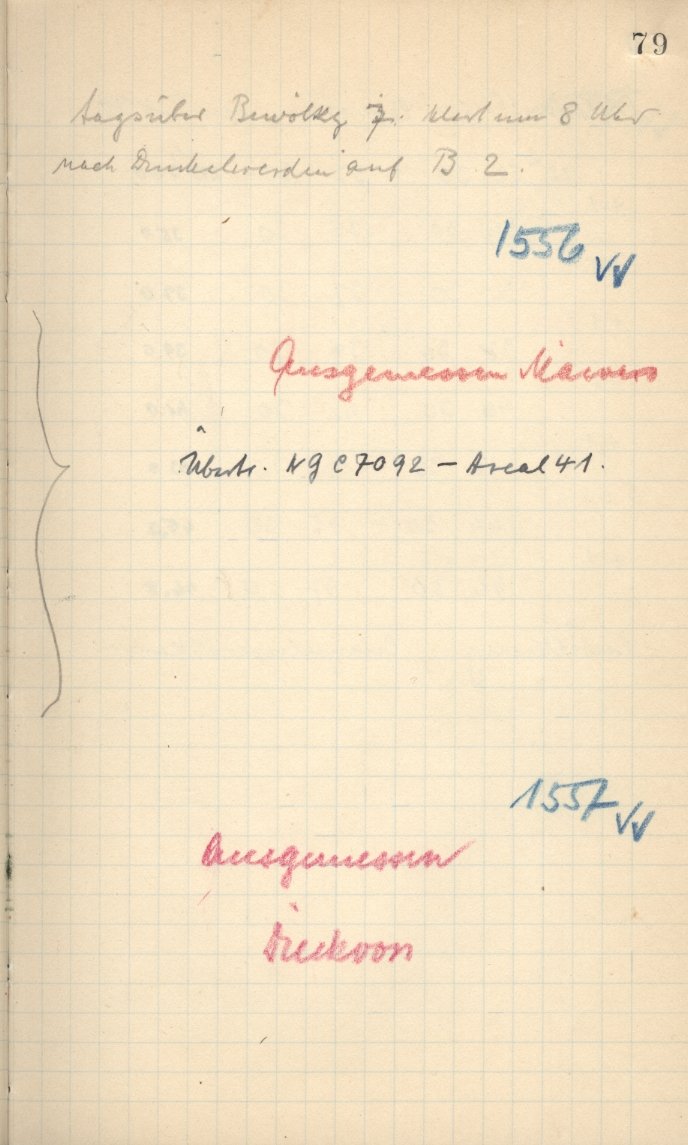 79
tagsüber Bewölkg 7. klart um 8 Uhr
nach Dunkelwerden auf B 2.
1556
Ausgemessen
Übertr. NGC 7092 - Areal 41.
1557
Ausgemessen
Dieckvoss